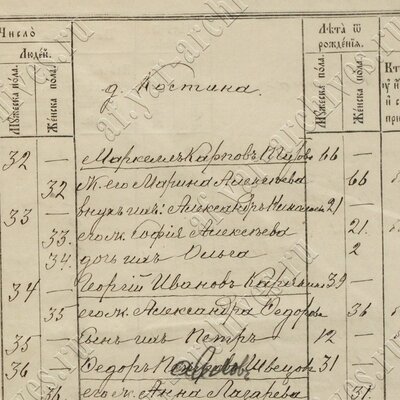 Число
Людей.
Мужеска пола.
Женска пола.
Лѣта ѿ рожденїя.
Мужеска пола.
Женска пола.
д. Костина.
32 — Маркеллъ Карповъ 66 —
— 32 ж. его Марина Алексѣева — 66
33 — внукъ ихъ: Александръ 21 —
— 33. его ж. Софія Алексѣева — 21.
— 34. дочь ихъ Ольга — 2
34 — Георгій Ивановъ 39 —
— 35 его ж. Александра Ѳедорова — 36
35 — сынъ ихъ Петръ 12 —
36 — Ѳедоръ Швецовъ 31 —
— 36 его ж. Анна Лазарева — 31.